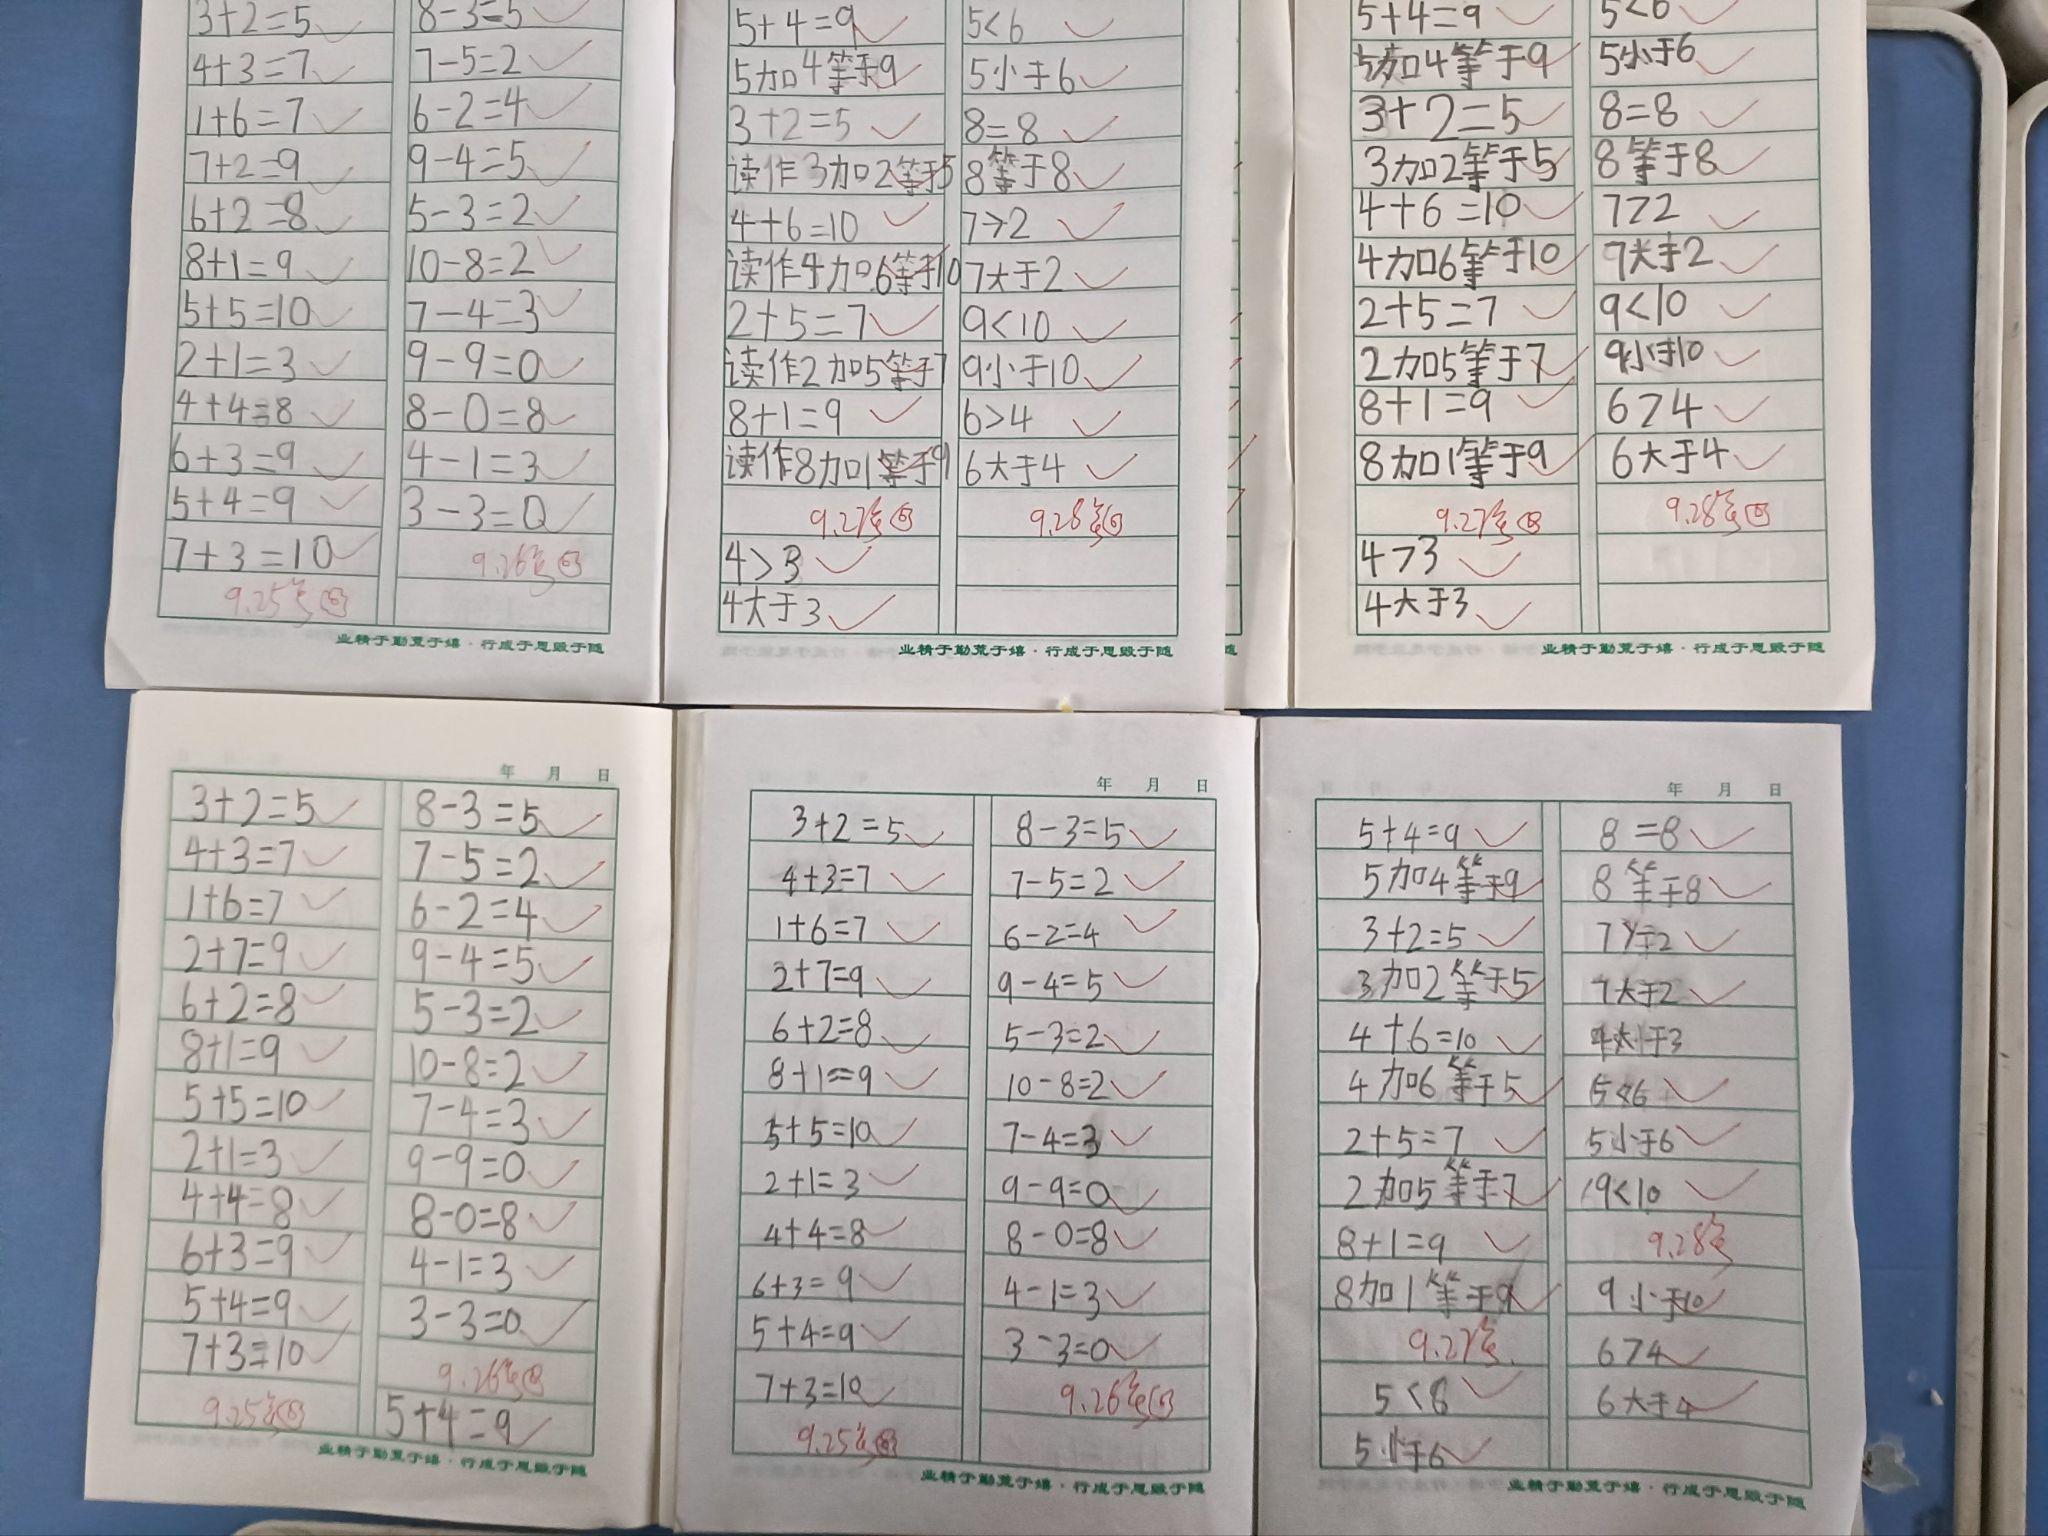 3+2=5
4+3=7
1+6=7
7+2=9
6+2=8
8+1=9
5+5=10
2+1=3
4+4=8
6+3=9
5+4=9
7+3=10
9.25
8-3=5
7-5=2
6-2=4
9-4=5
5-3=2
10-8=2
7-4=3
9-9=0
8-0=8
4-1=3
3-3=0
9.26
业精于勤荒于嬉·行成于思毁于随
5+4=9
5加4等于9
3+2=5
读作3加2等于5
4+6=10
读作4加6等于10
2+5=7
读作2加5等于7
8+1=9
读作8加1等于9
9.27
4>3
4大于3
5<6
5小于6
8=8
8等于8
7>2
7大于2
9<10
9小于10
6>4
6大于4
9.28
业精于勤荒于嬉·行成于思毁于随
随
5+4=9
5加4等于9
3+2=5
3加2等于5
4+6=10
4加6等于10
2+5=7
2加5等于7
8+1=9
8加1等于9
9.27
4>3
4大于3
5<6
5小于6
8=8
8等于8
7>2
7大于2
9<10
9小于10
6>4
6大于4
9.28
业精于勤荒于嬉·行成于思毁于随
年 月 日
3+2=5
4+3=7
1+6=7
2+7=9
6+2=8
8+1=9
5+5=10
2+1=3
4+4=8
6+3=9
5+4=9
7+3=10
9.25
8-3=5
7-5=2
6-2=4
9-4=5
5-3=2
10-8=2
7-4=3
9-9=0
8-0=8
4-1=3
3-3=0
9.26
5+4=9
业精于勤荒于嬉·行成于思毁于随
年 月 日
3+2=5
4+3=7
1+6=7
2+7=9
6+2=8
8+1=9
5+5=10
2+1=3
4+4=8
6+3=9
5+4=9
7+3=10
9.25
8-3=5
7-5=2
6-2=4
9-4=5
5-3=2
10-8=2
7-4=3
9-9=0
8-0=8
4-1=3
3-3=0
9.26
业精于勤荒于嬉·行成于思毁于随
年 月 日
5+4=9
5加4等于9
3+2=5
3加2等于5
4+6=10
4加6等于5
2+5=7
2加5等于7
8+1=9
8加1等于9
9.27
5<8
5小于6
8=8
8等于8
7大于2
5<6
5小于6
9<10
9.28
9小于10
6>4
6大于4
业精于勤荒于嬉·行成于思毁于随